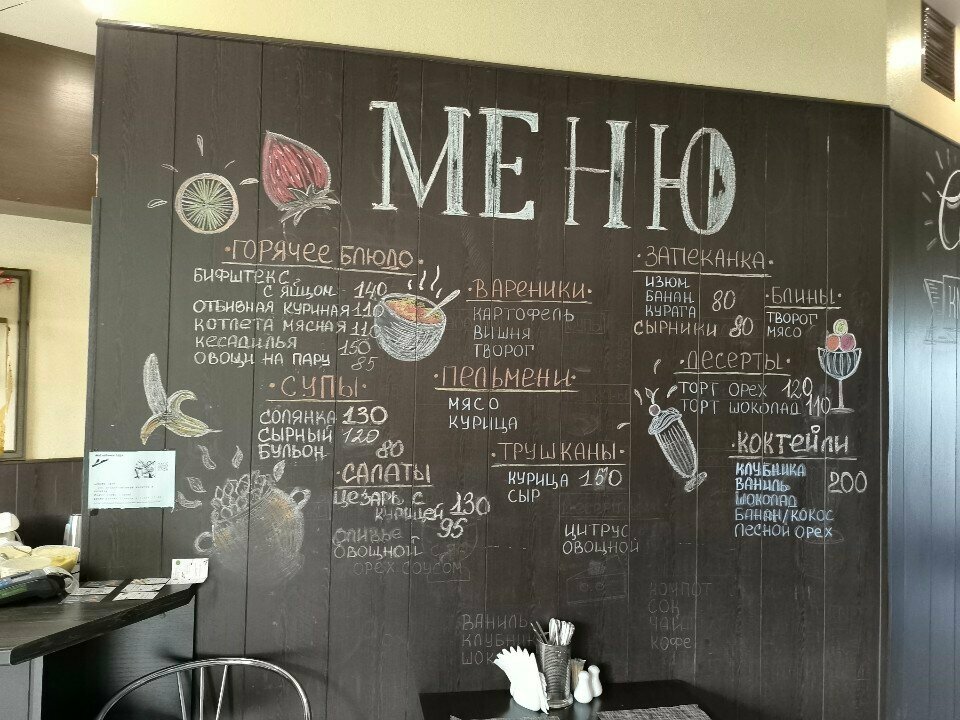 МЕНЮ
·ГОРЯЧЕЕ БЛЮДО·
БИФШТЕКС
С ЯЙЦОМ - 140
ОТБИВНАЯ КУРИНАЯ 110
КОТЛЕТА МЯСНАЯ 110
КЕСАДИЛЬЯ 150
ОВОЩИ НА ПАРУ 85
·СУПЫ·
СОЛЯНКА 130
СЫРНЫЙ 120
БУЛЬОН 80
·САЛАТЫ
ЦЕЗАРЬ С
КУРИЦЕЙ 130
95
ОВОЩНОЙ
ОРЕХ.СОУСОМ
·ВАРЕНИКИ·
КАРТОФЕЛЬ
ВИШНЯ
ТВОРОГ
·ПЕЛЬМЕНИ·
МЯСО
КУРИЦА
·ТРУШКАНЫ·
КУРИЦА 150
СЫР
ЦИТРУС
ОВОЩНОЙ
ВАНИЛЬ
КЛУБНИКА
·ЗАПЕКАНКА·
ИЗЮМ
БАНАН 80
КУРАГА
СЫРНИКИ 80
·БЛИНЫ·
ТВОРОГ
МЯСО
·ДЕСЕРТЫ·
ТОРТ ОРЕХ 120
ТОРТ ШОКОЛАД 110
КОКТЕЙЛИ
КЛУБНИКА
ВАНИЛЬ 200
ШОКОЛАД
БАНАН/КОКОС
ЛЕСНОЙ ОРЕХ
КОМПОТ
СОК
ЧАЙ
КОФЕ